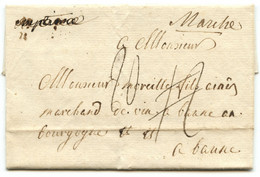 Marche
a Monsieur
Monsieur morveille fils ainé
marchand de vin a baune en
bourgogne
a baune